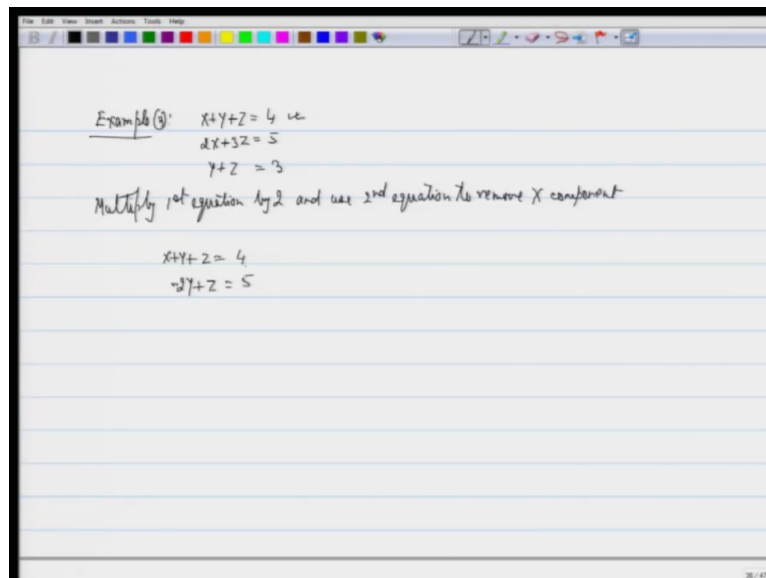 File Edit View Insert Actions Tools Help
B I
Example (3): x+y+z = 4
2x+3z = 5
y+z = 3
Multiply 1st equation by 2 and use 2nd equation to remove x component
x+y+z = 4
-2y+z = 5